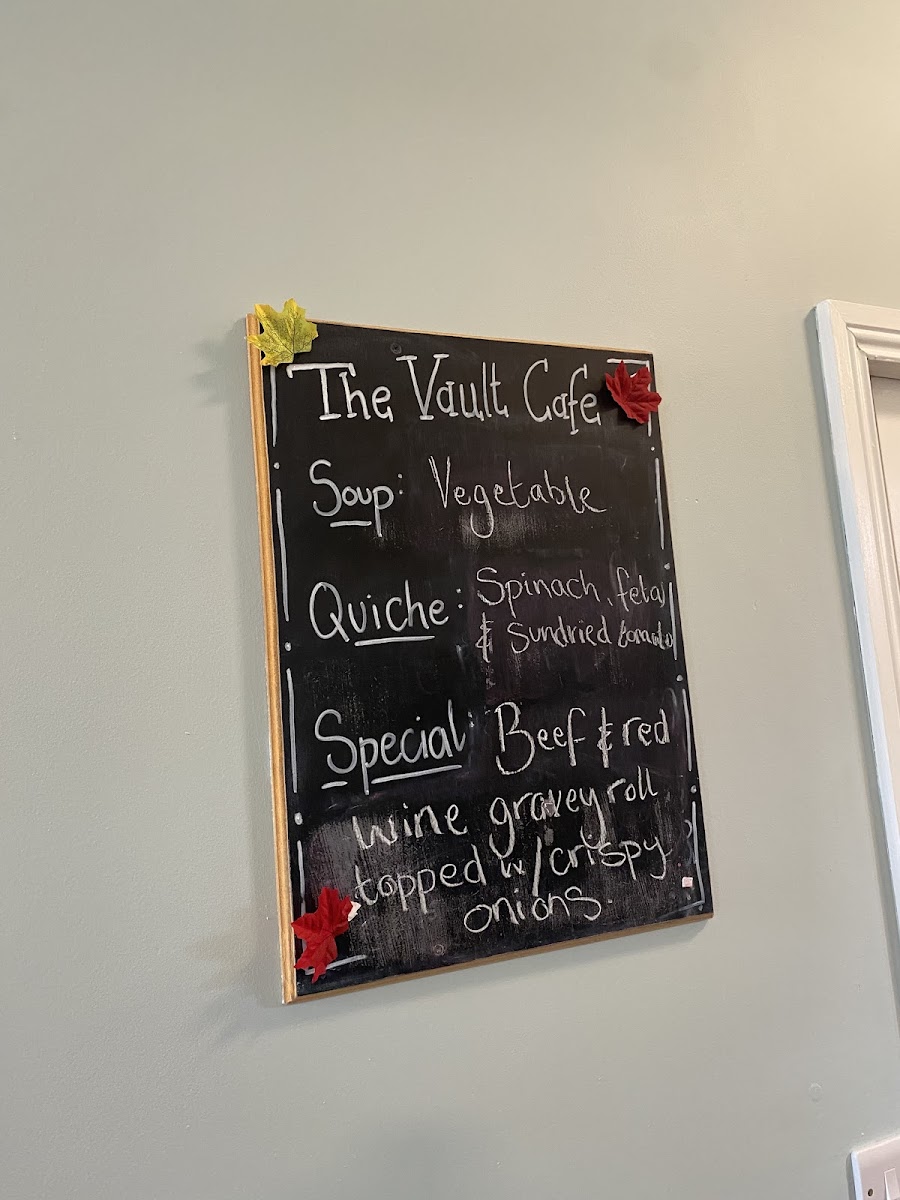 The Vault Cafe
Soup: Vegetable
Quiche: Spinach, feta,
& Sundried tomato
Special: Beef & red
wine gravey roll
topped w/crispy
onions.